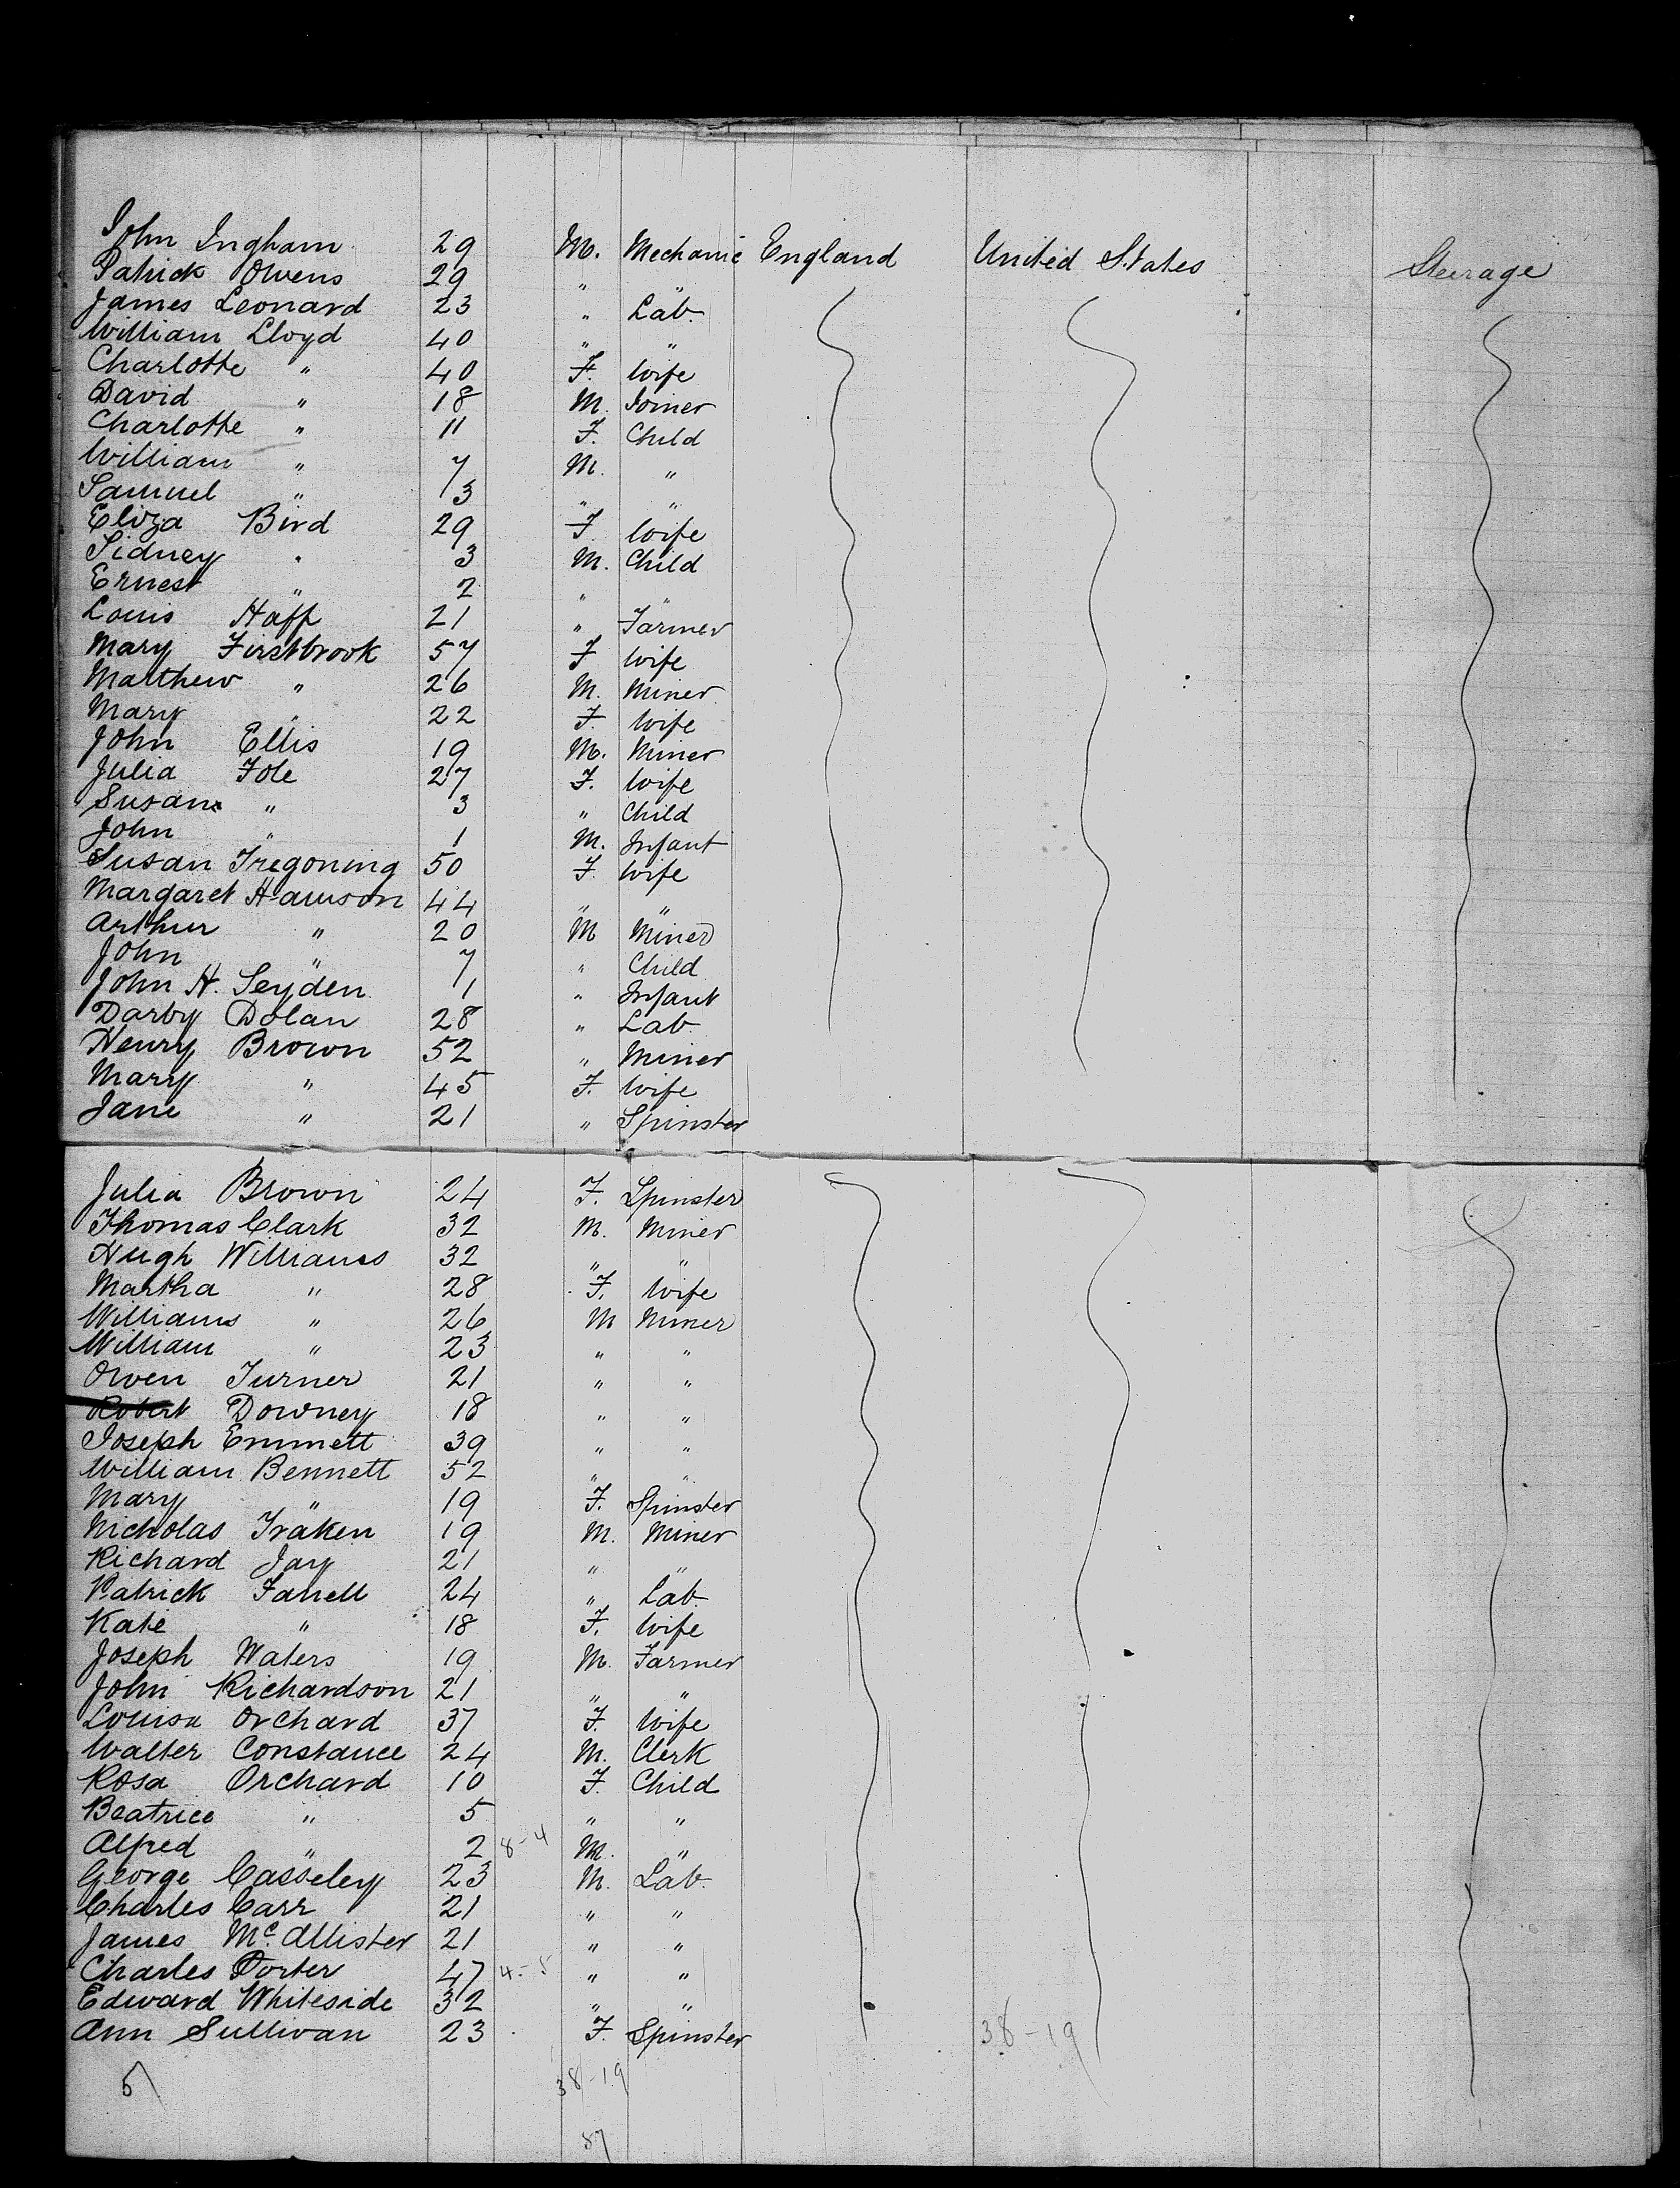 John Ingham 29 M. Mechanic England United States Steerage
Patrick Owens 29 " "
James Leonard 23 " Lab.
William Lloyd 40 " "
Charlotte " 40 F. Wife
David " 18 M. Joiner
Charlotte " 11 F. Child
William " 7 M. "
Samuel " 3 " "
Eliza Bird 29 F. Wife
Sidney " 3 M. Child
Ernest " 2 " "
Louis Haff 21 " Farmer
Mary Firstbrook 57 F Wife
Matthew " 26 M. Miner
Mary " 22 F. Wife
John Ellis 19 M. Miner
Julia Fole 27 F. Wife
Susan " 3 " Child
John " 1 M. Infant
Susan Tregoning 50 F. Wife
Margaret Hawson 44 " "
Arthur " 20 M Miner
John " 7 " Child
John H. Seyden 1 " Infant
Darby Dolan 28 " Lab.
Henry Brown 52 " Miner
Mary " 45 F. Wife
Jane " 21 " Spinster
Julia Brown 24 F. Spinster
Thomas Clark 32 M. Miner
Hugh Williams 32 " "
Martha " 28 F. Wife
Williams " 26 M Miner
William " 23 " "
Owen Turner 21 " "
Robert Downey 18 " "
Joseph Emmett 39 " "
William Bennett 52 " "
Mary " 19 F. Spinster
Nicholas Traken 19 M. Miner
Richard Jay 21 " "
Patrick Farrell 24 " Lab.
Kate " 18 F. Wife
Joseph Waters 19 M. Farmer
John Richardson 21 " "
Louisa Orchard 37 F. Wife
Walter Constance 24 M. Clerk
Rosa Orchard 10 F. Child
Beatrice " 5 " "
Alfred " 2 8-4 M. "
George Casseley 23 M. Lab.
Charles Carr 21 " "
James Mc. Allister 21 " "
Charles Porter 47 4-5 " "
Edward Whiteside 32 " "
Ann Sullivan 23 F. Spinster 38-19
38-19
57